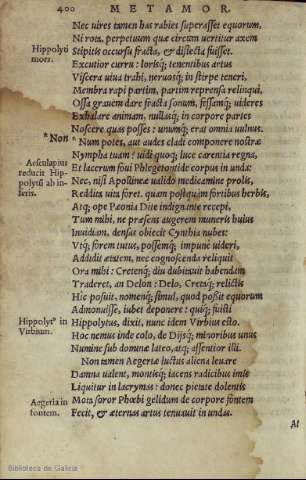 400 METAMOR.
Nec uires tamen has rabies superasset equorum,
Ni rota, perpetuum quæ circum uertitur axem
Hippolyti mors.
Stipitis occursu fracta, & disiecta fuisset.
Excutior curru: lorisq; tenentibus artus
Viscera uiua trahi, neruosq; in stirpe teneri,
Membra rapi partim, partim reprensa relinqui,
Ossa grauem dare fracta sonum, fessamq; uideres
Exhalare animam, nullasq; in corpore partes
Noscere quas posses: unumq; erat omnia uulnus.
*Non
* Num potes, aut audes cladi componere nostræ
Nympha tuam? uidi quoq; luce carentia regna,
Aesculapius reducit Hippolytũ ab inferis.
Et lacerum foui Phlegetontide corpus in unda:
Nec, nisi Apollineæ ualido medicamine prolis,
Reddita uita foret. quam postquam fortibus herbis,
Atq; ope Pæonia Dite indignante recepi,
Tum mihi, ne præsens augerem muneris huius
Inuidiam, densas obiecit Cynthia nubes:
Vtq; forem tutus, possemq; impune uideri,
Addidit ætatem, nec cognoscenda reliquit
Ora mihi: Cretenq; diu dubitauit habendam
Traderet, an Delon: Delo, Cretaq; relictis
Hic posuit, nomenq; simul, quod possit equorum
Admonuisse, iubet deponere: quiq; fuisti
Hippolytᵒ in Virbium.
Hippolytus, dixit, nunc idem Virbius esto.
Hoc nemus inde colo, de Dijsq; minoribus unus
Numine sub dominæ lateo, atq; assentior illi.
Non tamen Aegeriæ luctus aliena leuare
Damna ualent, montisq; iacens radicibus imis
Liquitur in lacrymas: donec pietate dolentis
Aegeria in fontem.
Mota soror Phœbi gelidum de corpore fontem
Fecit, & æternas artus tenuauit in undas.
At
Biblioteca de Galicia